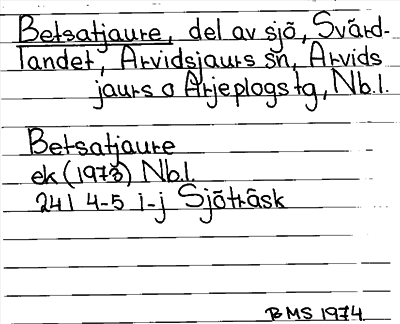 Betsatjaure, del av sjö, Svärd-
landet, Arvidsjaurs sn, Arvids
jaurs o Arjeplogs tg, Nb.l.
Betsatjaure
ek (1973) Nb.l.
241 4-5 i-j Sjöträsk
BMS 1974